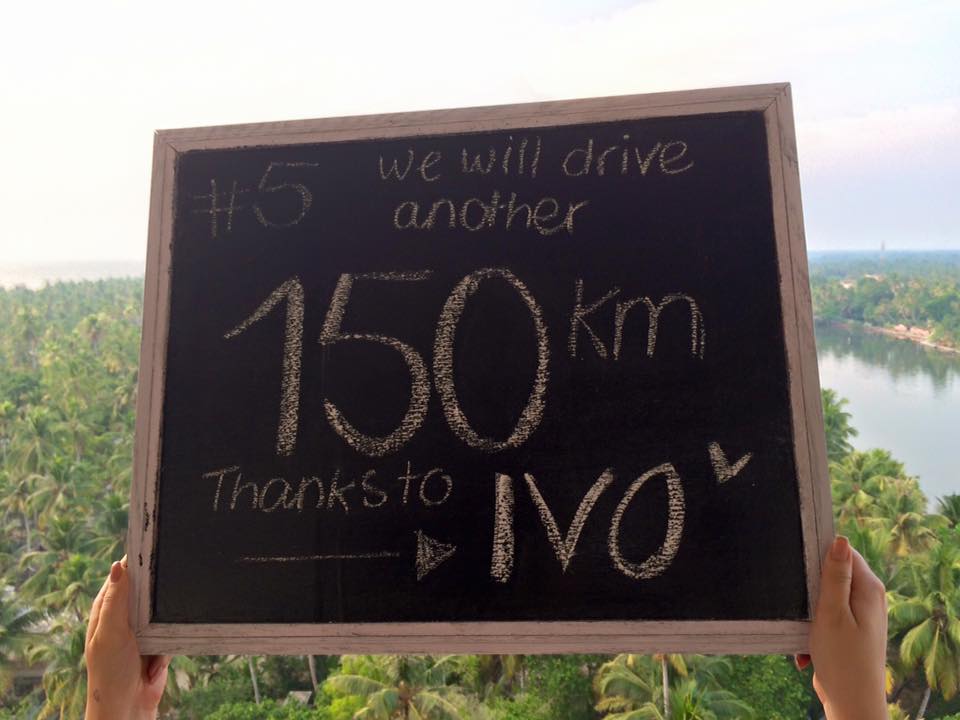 #5 we will drive
another
150 km
Thanks to IVO